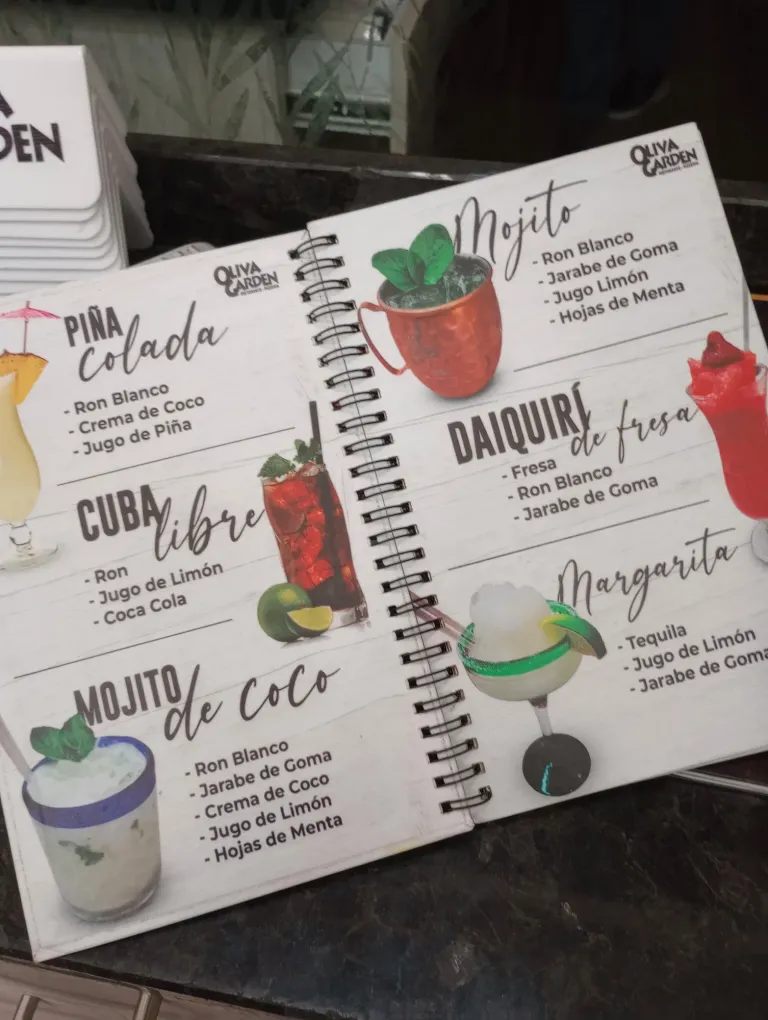 DEN
OLIVA
GARDEN
PIÑA
colada
- Ron Blanco
- Crema de Coco
- Jugo de Piña
CUBA
libre
- Ron
- Jugo de Limón
- Coca Cola
MOJITO
de coco
- Ron Blanco
- Jarabe de Goma
- Crema de Coco
- Jugo de Limón
- Hojas de Menta
OLIVA
GARDEN
Mojito
- Ron Blanco
- Jarabe de Goma
- Jugo Limón
- Hojas de Menta
DAIQUIRÍ
de fresa
- Fresa
- Ron Blanco
- Jarabe de Goma
Margarita
- Tequila
- Jugo de Limón
- Jarabe de Goma